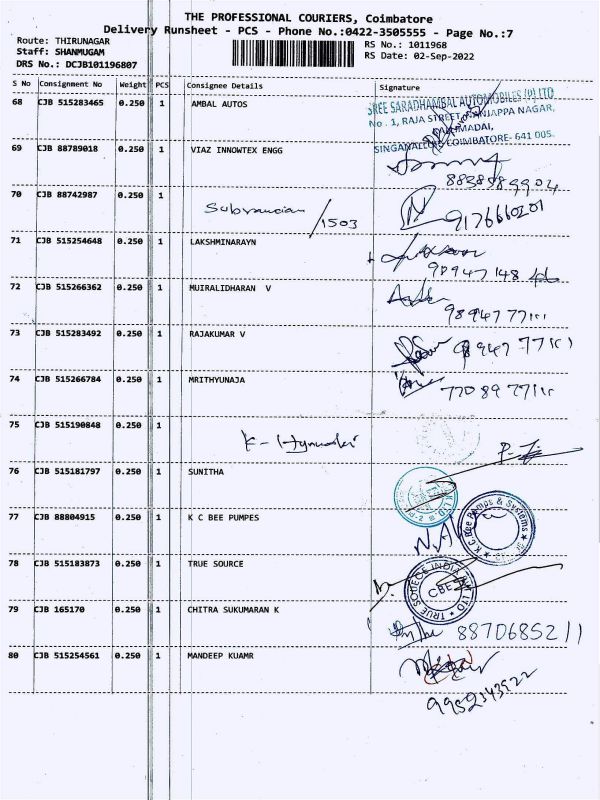 THE PROFESSIONAL COURIERS, Coimbatore
Delivery Runsheet - PCS - Phone No.:0422-3505555 - Page No.:7
Route: THIRUNAGAR
RS No.: 1011968
Staff: SHANMUGAM
RS Date: 02-Sep-2022
DRS No.: DCJB101196807
S No Consignment No Weight PCS Consignee Details Signature
68 CJB 515283465 0.250 1 AMBAL AUTOS
SREE SARADHAMBAL AUTOMOBILES (P) LTD
No . 1, RAJA STREET, NANJAPPA NAGAR,
SINGANALLUR COIMBATORE- 641 005.
69 CJB 88789018 0.250 1 VIAZ INNOWTEX ENGG
8838989904
70 CJB 88742987 0.250 1 /1503 9176660201
71 CJB 515254648 0.250 1 LAKSHMINARAYN
72 CJB 515266362 0.250 1 MUIRALIDHARAN V
98947 77111
73 CJB 515283492 0.250 1 RAJAKUMAR V 98947 77111
74 CJB 515266784 0.250 1 MRITHYUNAJA
77089 77111
75 CJB 515190848 0.250 1
K-
76 CJB 515181797 0.250 1 SUNITHA
77 CJB 88804915 0.250 1 K C BEE PUMPES
K.C. Bee Pumps & Systems
78 CJB 515183873 0.250 1 TRUE SOURCE
TRUE SOURCE INDIA PVT LTD
CBE
79 CJB 165170 0.250 1 CHITRA SUKUMARAN K
8870685211
80 CJB 515254561 0.250 1 MANDEEP KUAMR
9952343922